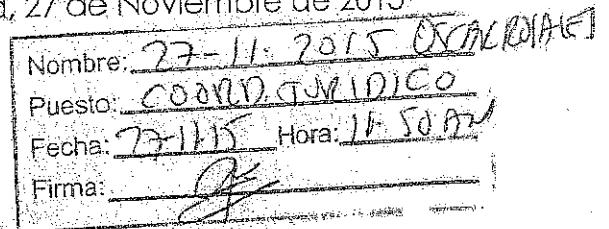 27 de Noviembre de 2015
Nombre: 27-11-2015
Puesto: COORD. JURIDICO
Fecha: 27-11-15 Hora: 11-50 AM
Firma: